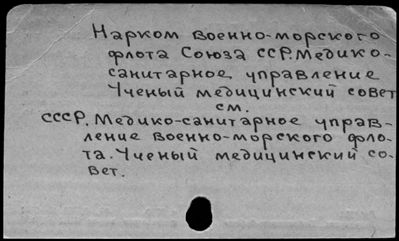 Нарком военно-морского
флота Союза ССР. Медико-
санитарное управление
Ученый медицинский совет
см.
СССР. Медико-санитарное управ-
ление военно-морского фло-
та. Ученый медицинский со-
вет.